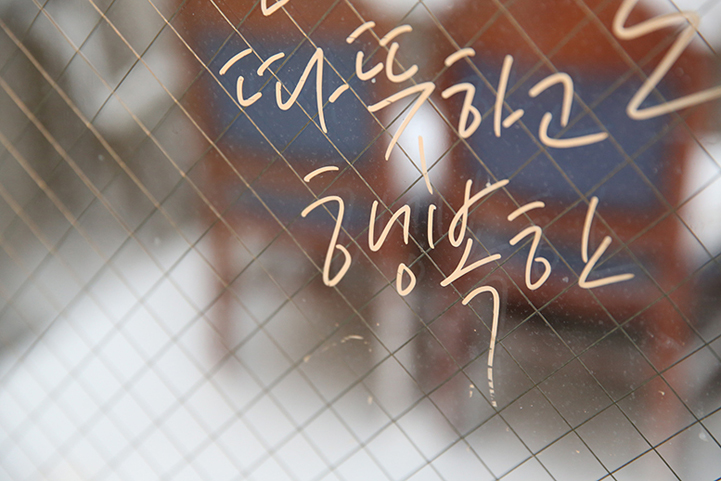 따뜻하고
행복한